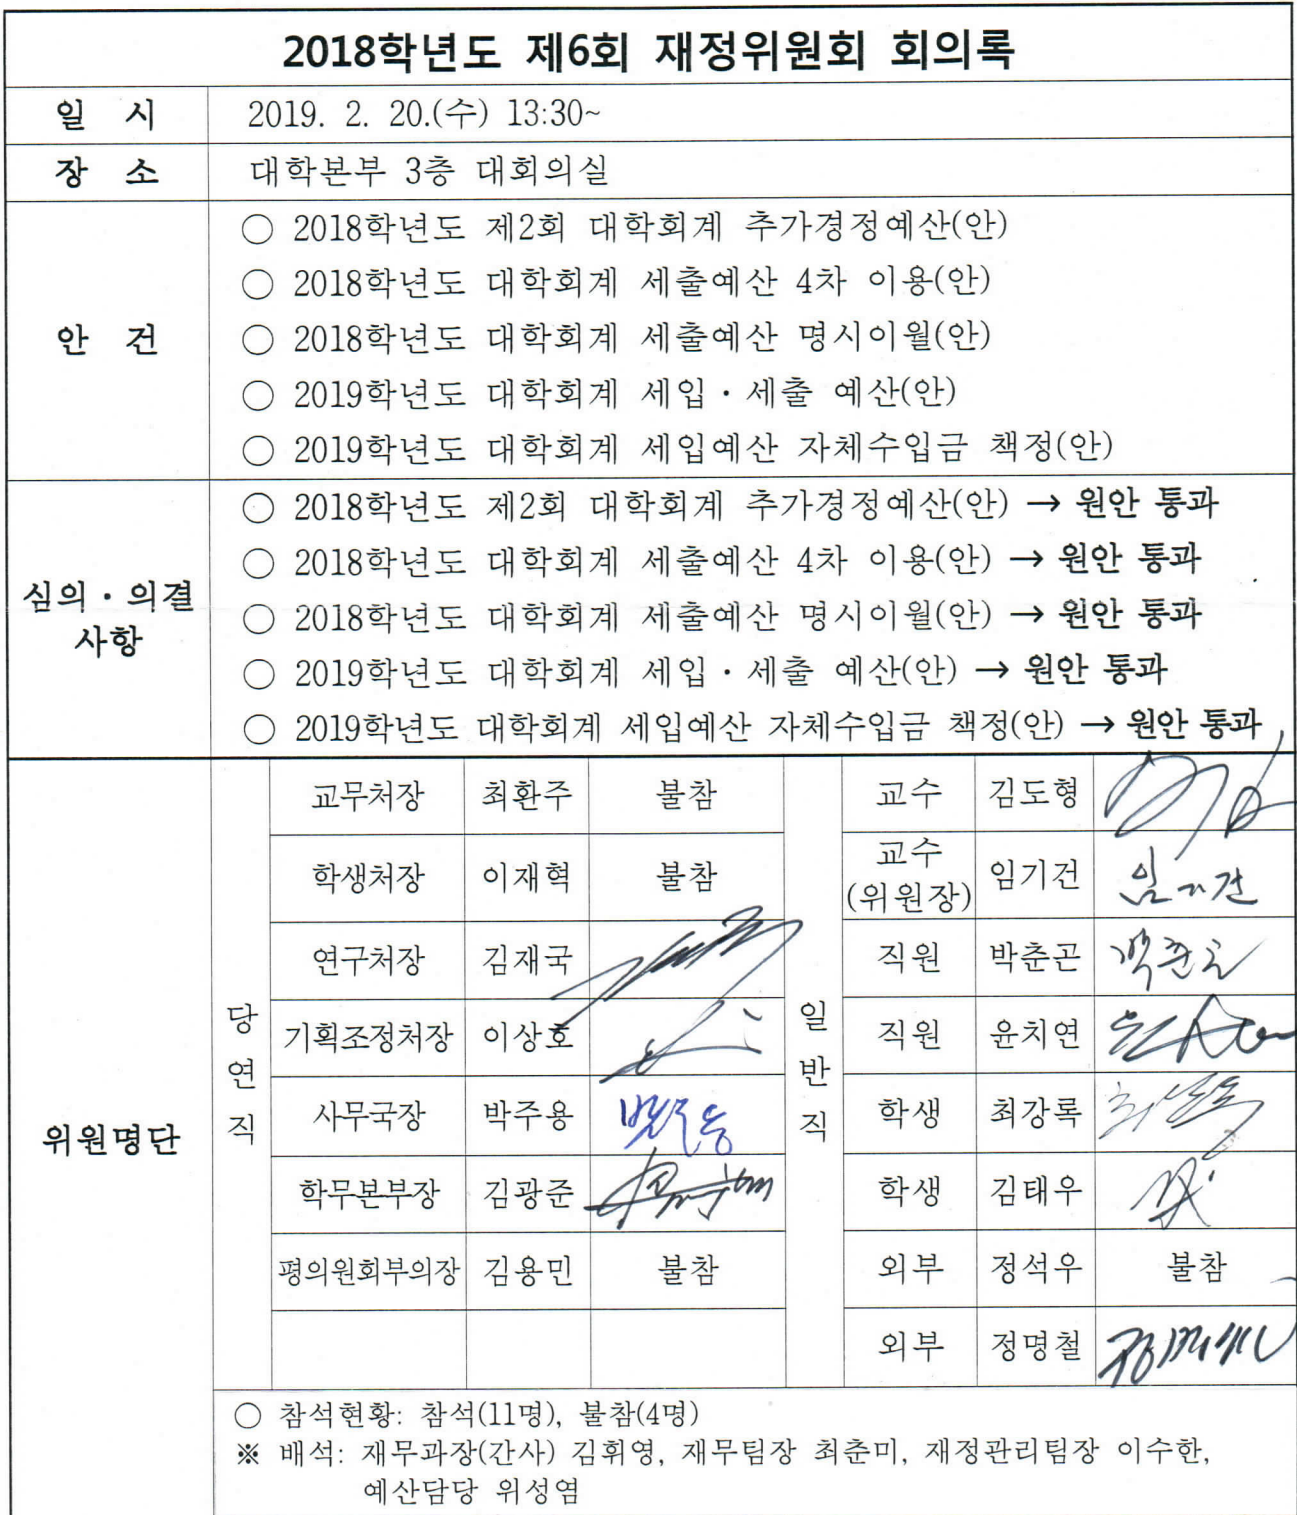 2018학년도 제6회 재정위원회 회의록
일 시 2019. 2. 20.(수) 13:30~
장 소 대학본부 3층 대회의실
안 건
○ 2018학년도 제2회 대학회계 추가경정예산(안)
○ 2018학년도 대학회계 세출예산 4차 이용(안)
○ 2018학년도 대학회계 세출예산 명시이월(안)
○ 2019학년도 대학회계 세입·세출 예산(안)
○ 2019학년도 대학회계 세입예산 자체수입금 책정(안)
심의·의결
사항
○ 2018학년도 제2회 대학회계 추가경정예산(안) → 원안 통과
○ 2018학년도 대학회계 세출예산 4차 이용(안) → 원안 통과
○ 2018학년도 대학회계 세출예산 명시이월(안) → 원안 통과
○ 2019학년도 대학회계 세입·세출 예산(안) → 원안 통과
○ 2019학년도 대학회계 세입예산 자체수입금 책정(안) → 원안 통과
위원명단
당연직
교무처장 최환주 불참
학생처장 이재혁 불참
연구처장 김재국
기획조정처장 이상호
사무국장 박주용
학무본부장 김광준
평의원회부의장 김용민 불참
일반직
교수 김도형
교수
(위원장) 임기건 임기건
직원 박춘곤
직원 윤치연
학생 최강록
학생 김태우
외부 정석우 불참
외부 정명철
○ 참석현황: 참석(11명), 불참(4명)
※ 배석: 재무과장(간사) 김휘영, 재무팀장 최춘미, 재정관리팀장 이수한,
예산담당 위성염